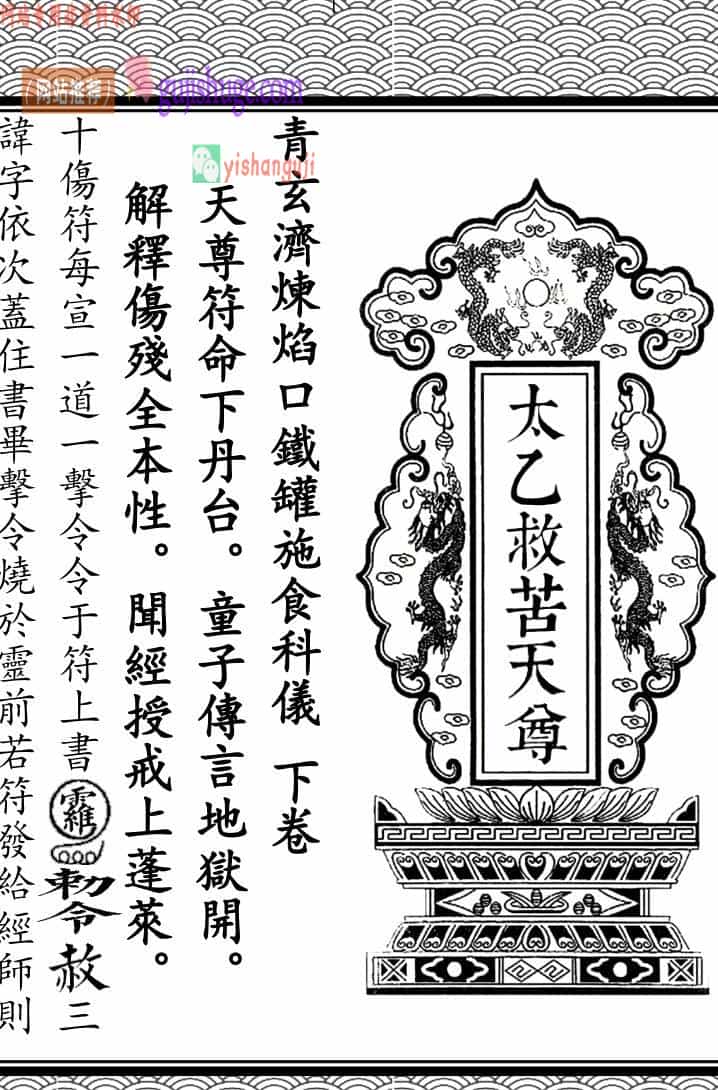 太乙救苦天尊
青玄濟煉焰口鐵罐施食科儀 下卷
天尊符命下丹台。童子傳言地獄開。
解釋傷殘全本性。聞經授戒上蓬萊。
十傷符每宣一道一擊令令于符上書 敕令赦三
諱字依次蓋住書畢擊令燒於靈前若符發給經師則
网站推荐
gujishuge.com
yishanguji